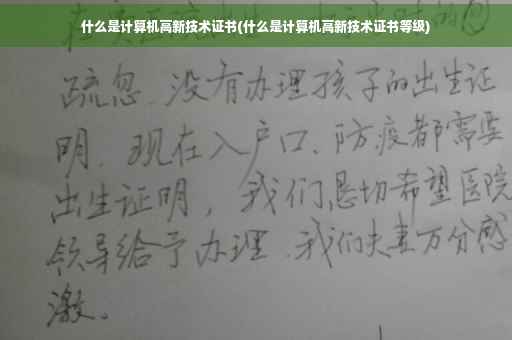 什么是计算机高新技术证书(什么是计算机高新技术证书等级)
疏忽、没有办理孩子的出生证
明、现在入户口、防疫都需要
出生证明，我们恳切希望医院
领导给予办理、我们夫妻万分感
激。